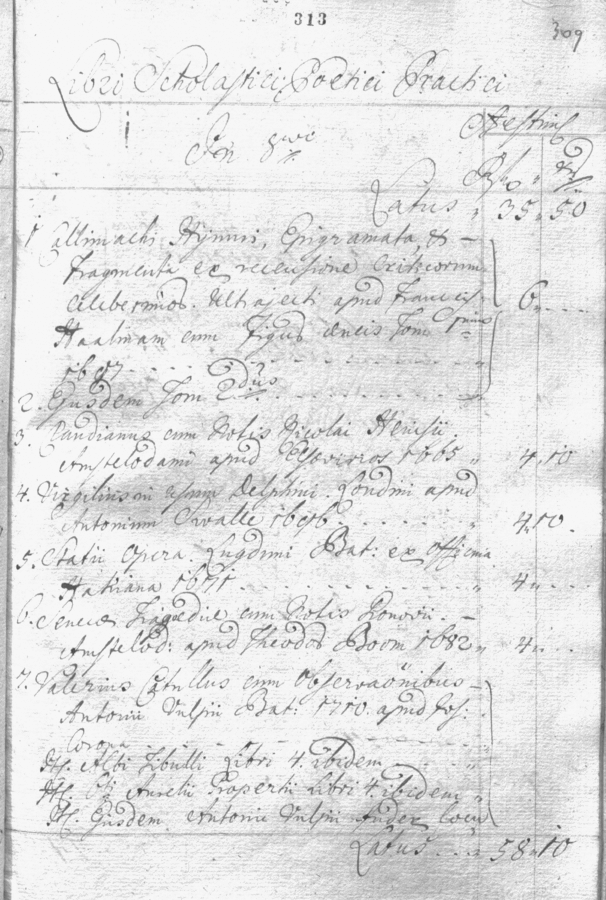 313
309
Libri Scholastici, Poetici Practici
In 8vo
Æstim
Latus " 35 " 50
1 Callimachi Hymni, Epigramata, &
Fragmenta ex recensione
celeberrimos. Ultrajecti apud Francis:
Haalmam cum Figuris æneis Tom 1mus
1697
2. Ejusdem Tom 2dus
3. Claudianus cum Notis Nicolai Heinsii
Amstelodami apud 1665 " 4 " 10
4. Virgilius in usum Delphini. Londini apud
Antonium Swalle 1696 4 " 10
5. Statii Opera. Lugduni Bat: ex officina
Hakiana 1671 " 4 "
6. Senecæ Tragædiæ cum Notis
Amstelod: apud Theodor Boom 1682 " 4 "
7. Valerius Catullus cum Observaonibus
Antonii Vulpii 1710. apud Jos:
Corona
It. Albi Tibulli Libri 4. ibidem
It. Aurelii Propertii Libri 4. ibidem "
It. Ejusdem Antonii Vulpii
Latus " 58 " 10